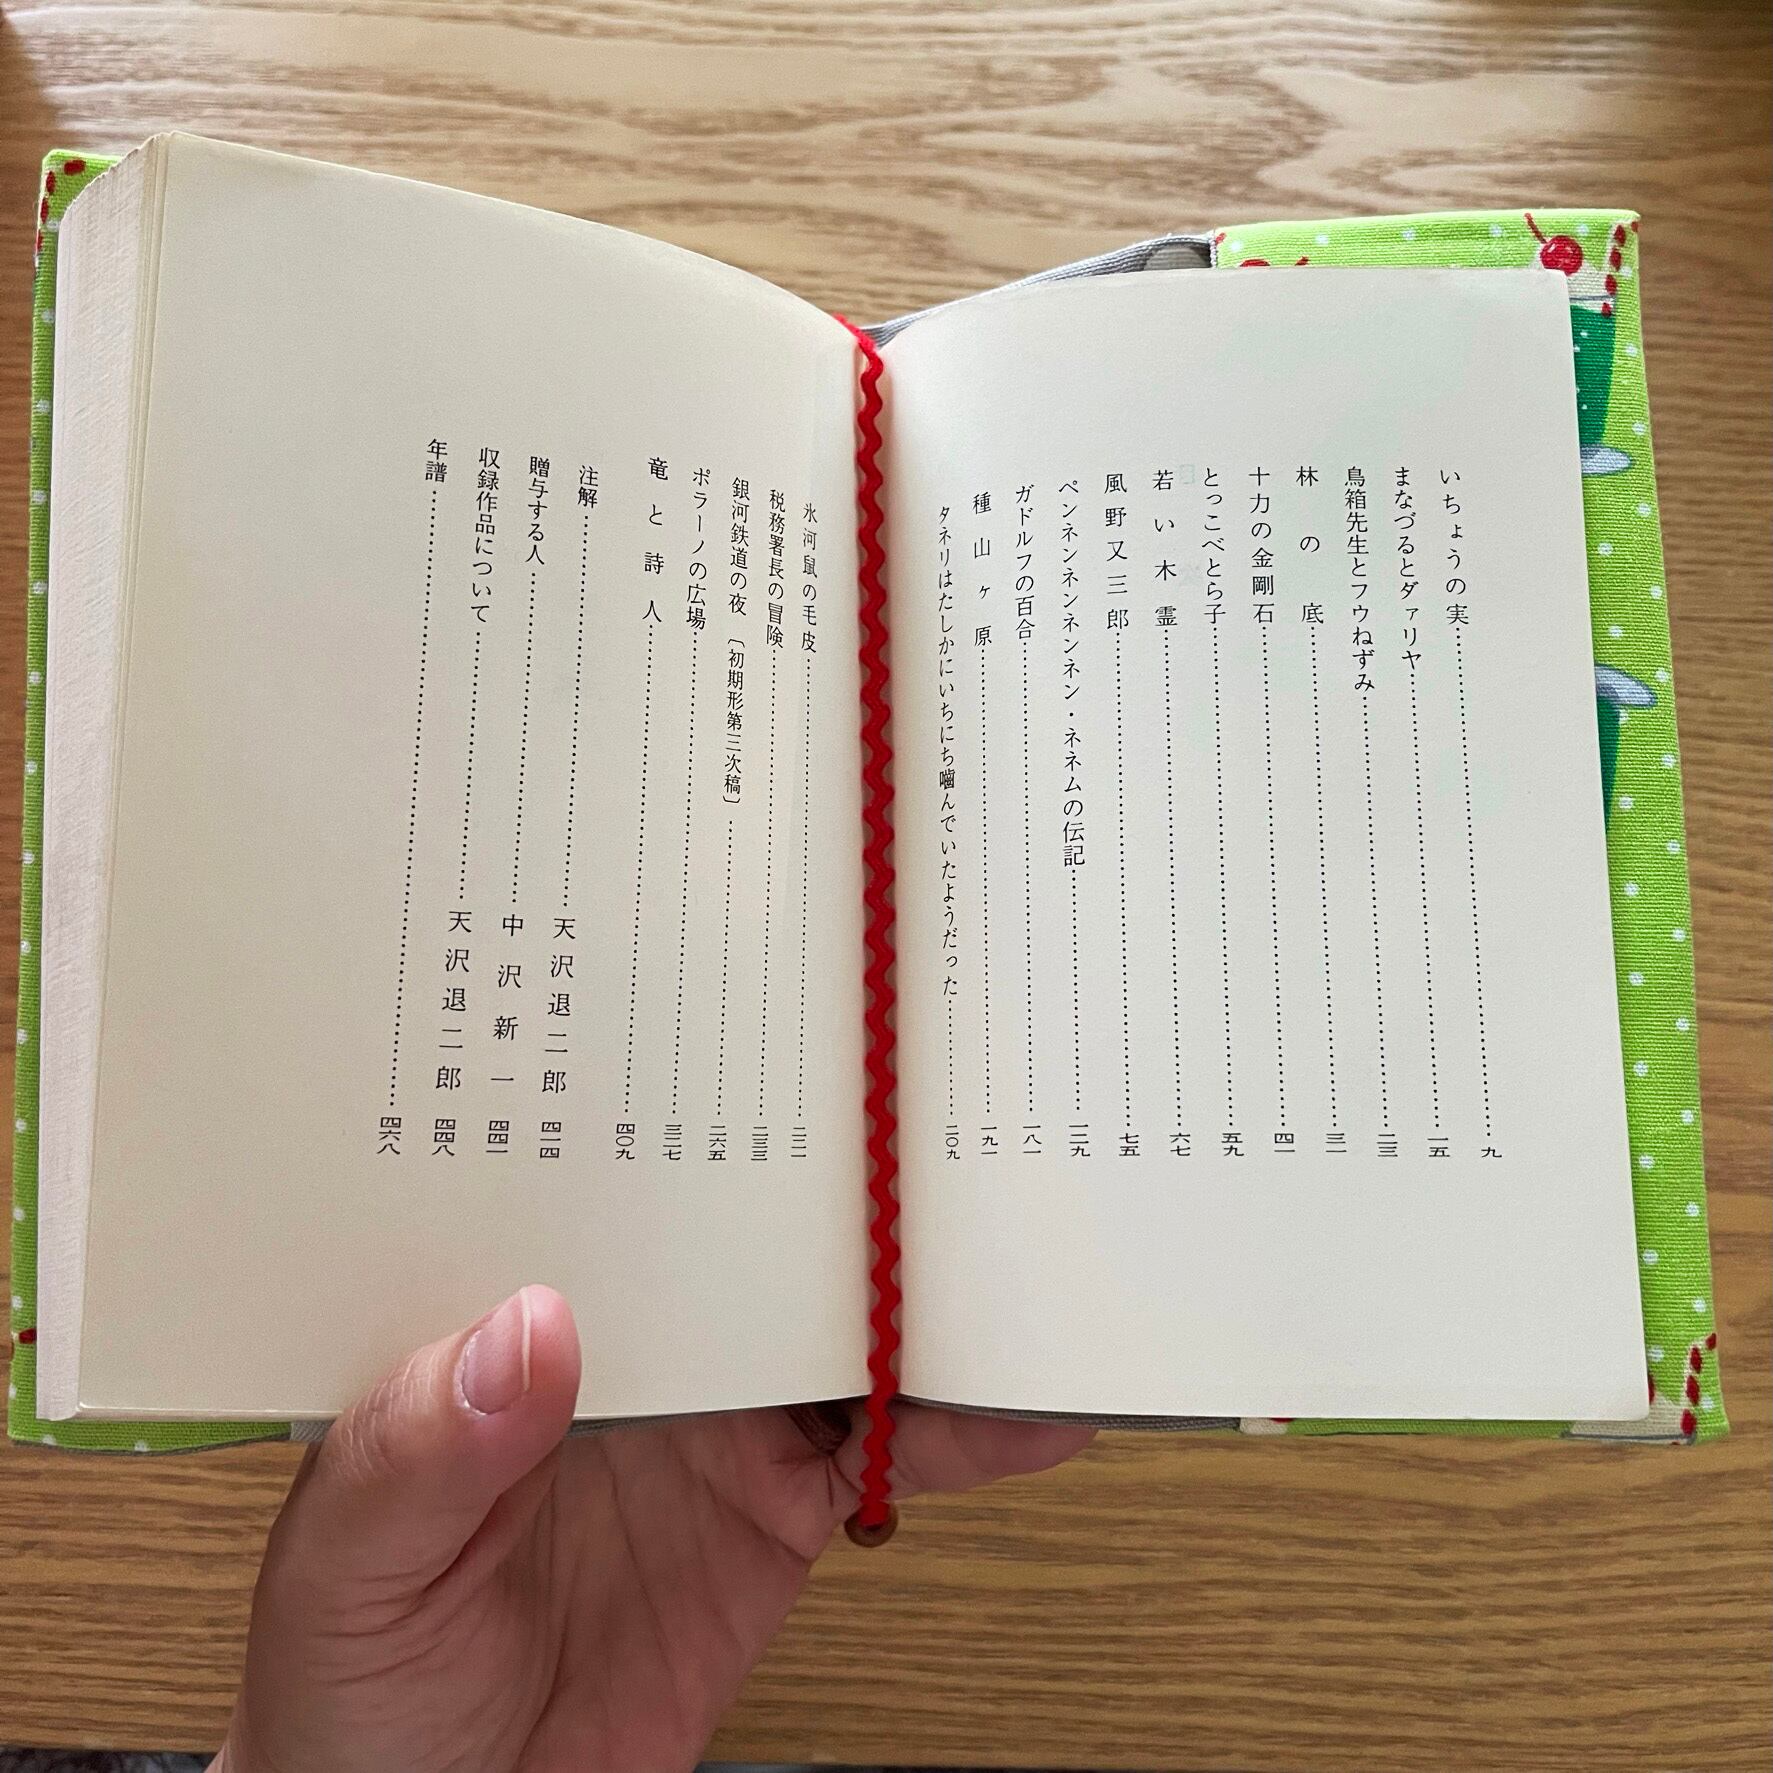 いちょうの実……………………九
まなづるとダァリヤ……………………一五
鳥箱先生とフウねずみ……………………二三
林の底……………………三一
十力の金剛石……………………四一
とっこべとら子……………………五九
若い木霊……………………六七
風野又三郎……………………七五
ペンネンネンネンネン・ネネムの伝記……………………一二九
ガドルフの百合……………………一八一
種山ヶ原……………………一九一
タネリはたしかにいちにち嚙んでいたようだった……………………二〇九
氷河鼠の毛皮……………………二二一
税務署長の冒険……………………二三三
銀河鉄道の夜〔初期形第三次稿〕……………………二六五
ポラーノの広場……………………三二七
竜と詩人……………………四〇九
注解……………………天沢退二郎 四一四
贈与する人……………………中沢新一 四四一
収録作品について……………………天沢退二郎 四四八
年譜……………………四六八